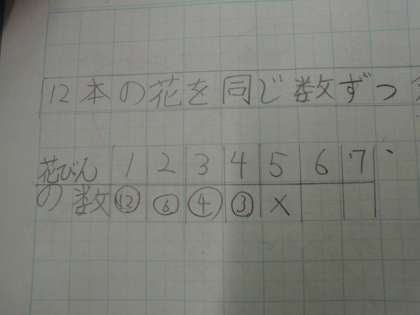 12本の花を同じ数ずつ
花びん 1 2 3 4 5 6 7
の数 ⑫ ⑥ ④ ③ ×